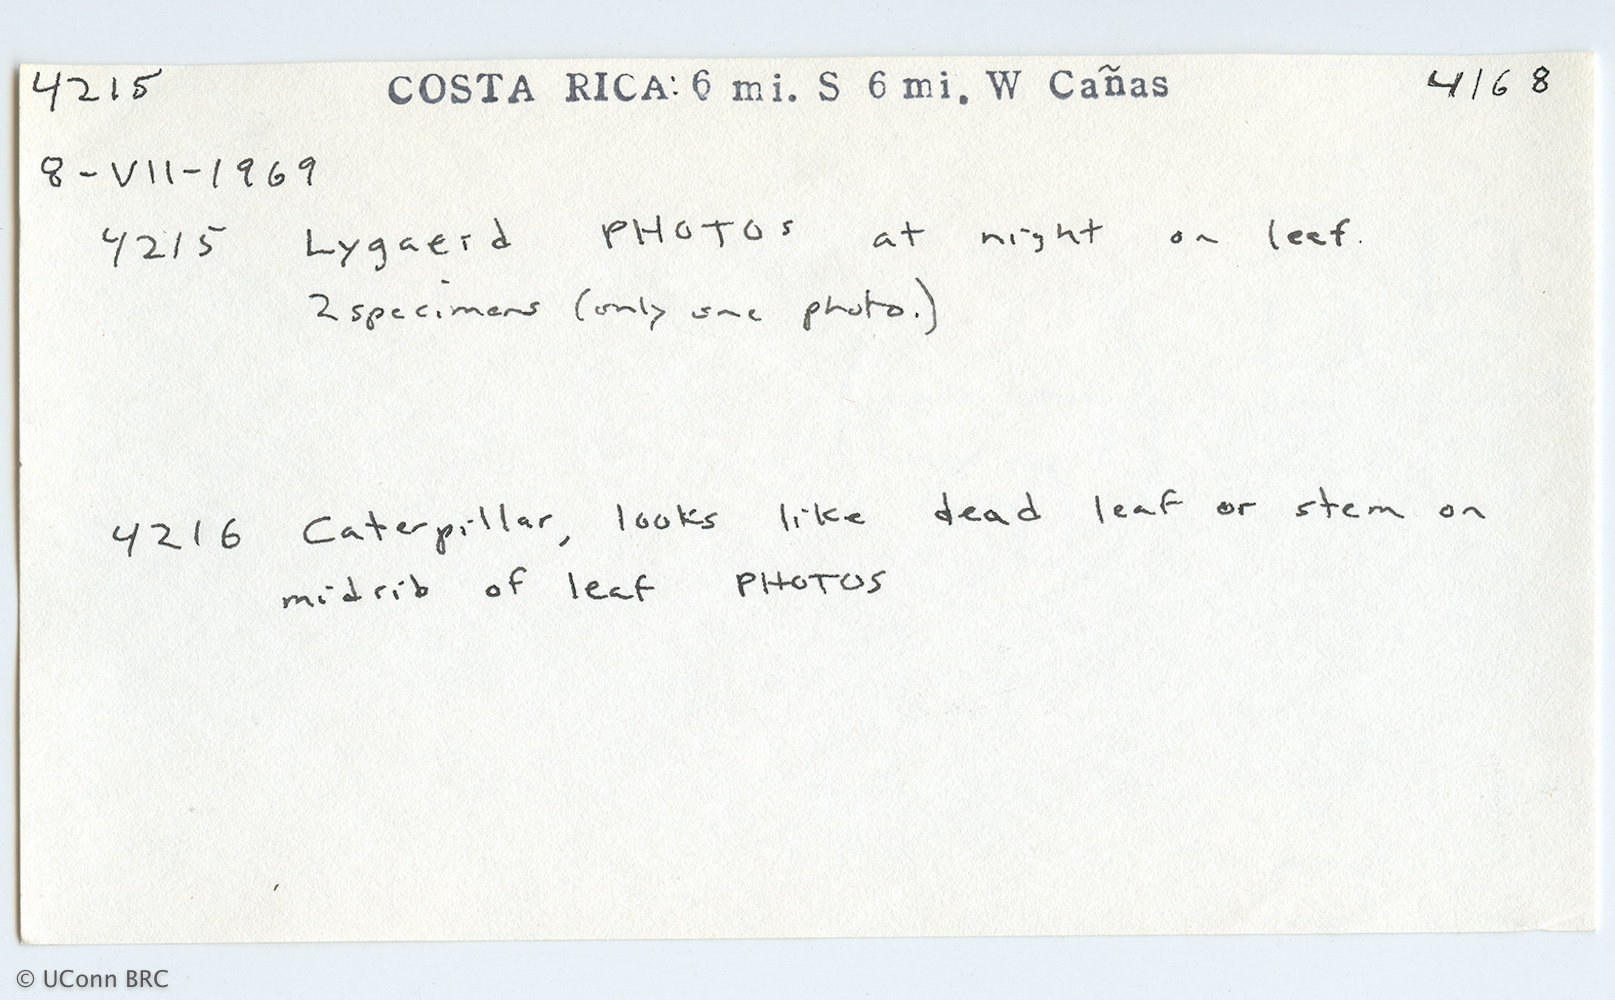 4215 COSTA RICA: 6 mi. S 6 mi. W Cañas 4168
8-VII-1969
4215 Lygaeid PHOTOS at night on leaf.
2 specimens (only one photo.)
4216 Caterpillar, looks like dead leaf or stem on
midrib of leaf PHOTOS
© UConn BRC